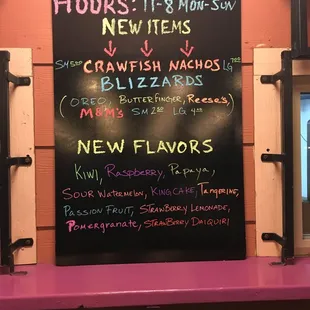 HOURS: 11-8 MON-SUN
NEW ITEMS
CRAWFISH NACHOS
BLIZZARDS
(OREO, BUTTERFINGER, REESE'S,
M&M'S SM 2.00 LG 4.00)
NEW FLAVORS
KIWI, RASPBERRY, PAPAYA,
SOUR WATERMELON, KINGCAKE, TANGERINE,
PASSION FRUIT, STRAWBERRY LEMONADE,
POMERGRANATE, STRAWBERRY DAIQUIRI